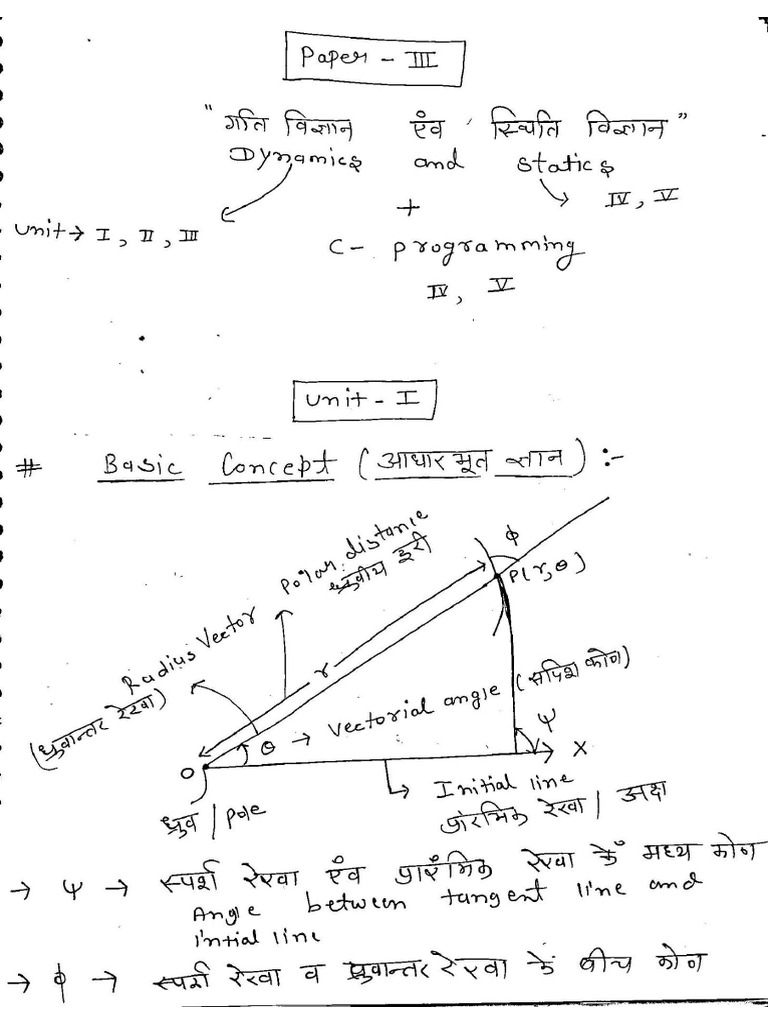 Paper - III
"गति विज्ञान एंव स्थिति विज्ञान"
Dynamics and statics
IV, V
+
Unit → I, II, III
C - Programming
IV, V
Unit - I
# Basic Concept (आधारभूत ज्ञान) :-
φ
Polar distance
ध्रुवीय दूरी
P(r,θ)
Radius Vector
(ध्रुवान्तर रेखा)
r
θ → Vectorial angle (सदिश कोण)
ψ
O
X
Initial line
प्रांरभिक रेखा / अक्ष
ध्रुव / Pole
→ ψ → स्पर्श रेखा एंव प्रारंभिक रेखा के मध्य कोण
Angle between tangent line and
initial line
→ φ → स्पर्श रेखा व ध्रुवान्तर रेखा के बीच कोण